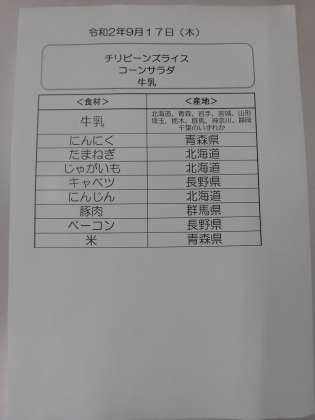 令和2年9月17日（木）
チリビーンズライス
コーンサラダ
牛乳
＜食材＞ ＜産地＞
牛乳 北海道、青森、岩手、宮城、山形
埼玉、栃木、群馬、神奈川、静岡
千葉のいずれか
にんにく 青森県
たまねぎ 北海道
じゃがいも 北海道
キャベツ 長野県
にんじん 北海道
豚肉 群馬県
ベーコン 長野県
米 青森県